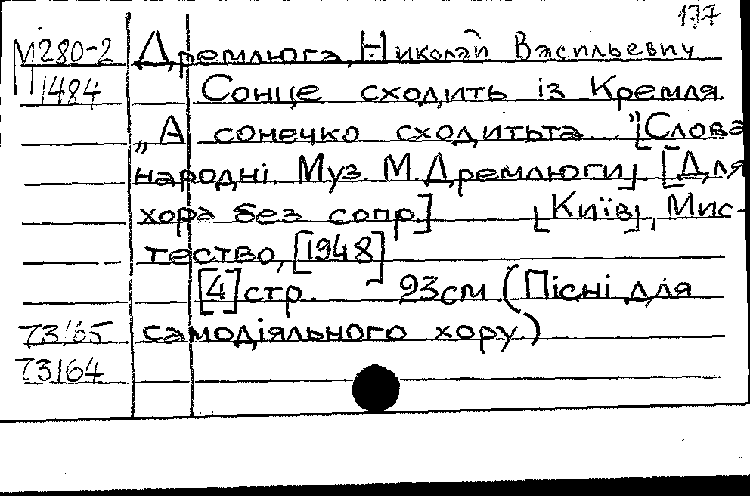 177
М280-2 Дремлюга, Николай Васильевич
П1484 Сонце сходить із Кремля.
„А сонечко сходитьта..." [Слова
народні. Муз. М. Дремлюги]. [Для
хора без сопр.] [Київ], Мис-
тество, [1948]
[4] стр. 23см (Пісні для
73165 самодіяльного хору.)
73164